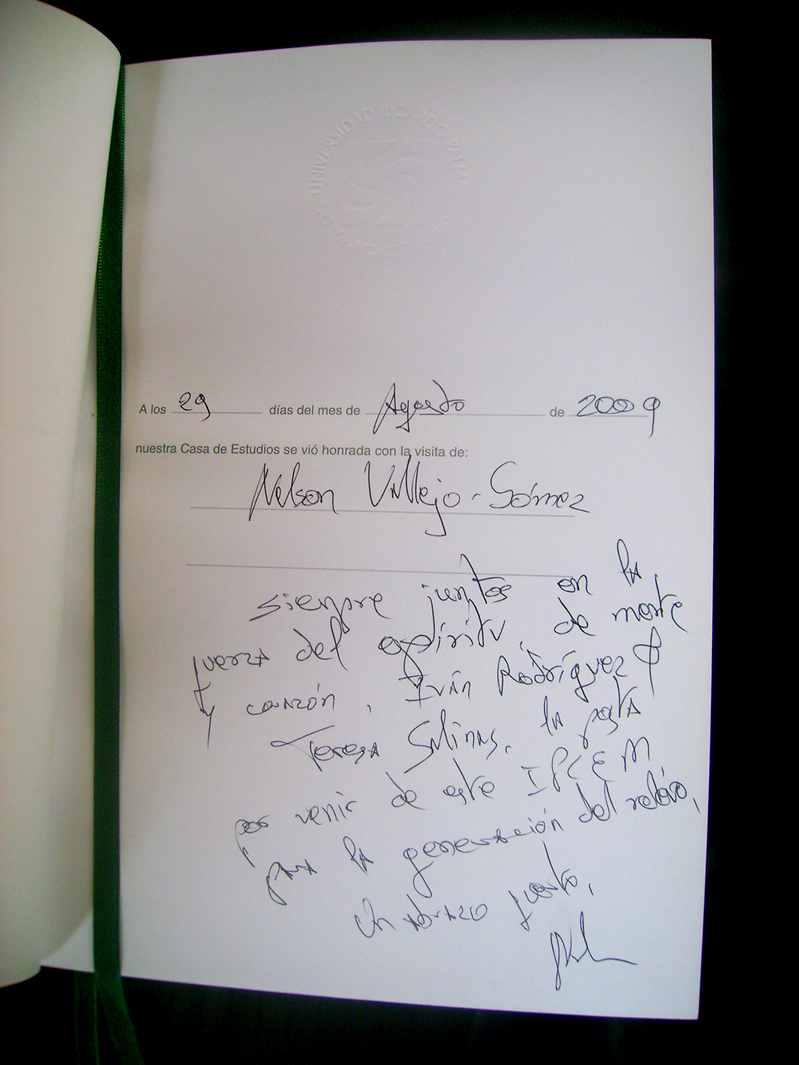 UNIVERSIDAD RICARDO PALMA
A los 29 días del mes de Agosto de 2009
nuestra Casa de Estudios se vió honrada con la visita de:
Nelson Vallejo-Gómez
siempre juntos en la
fuerza del espíritu, de mente
y corazón, Iván Rodríguez &
Teresa Salinas, la posta
por venir de este IPCEM
para la generación del relevo,
Un abrazo fuerte,